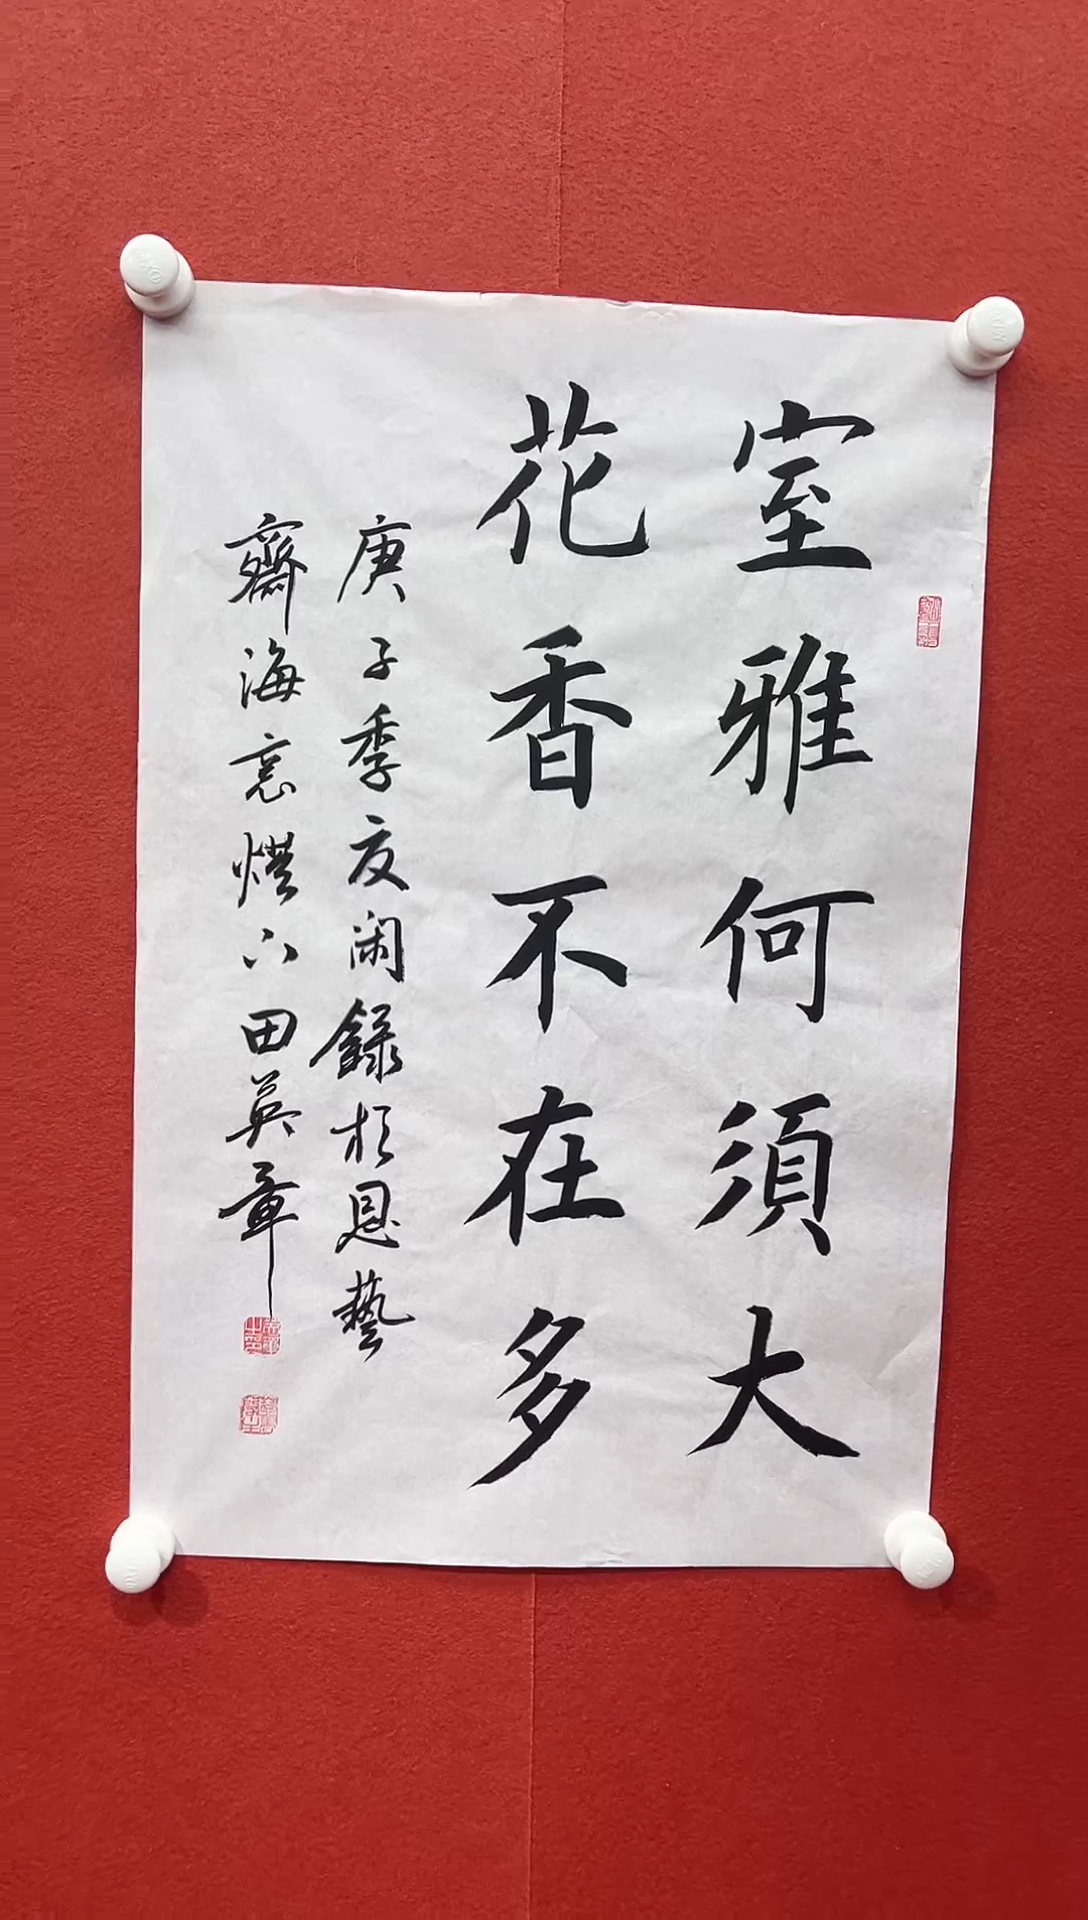 室雅何須大
花香不在多
庚子季夏闲錄於恩藝
齋海意燈下田英章